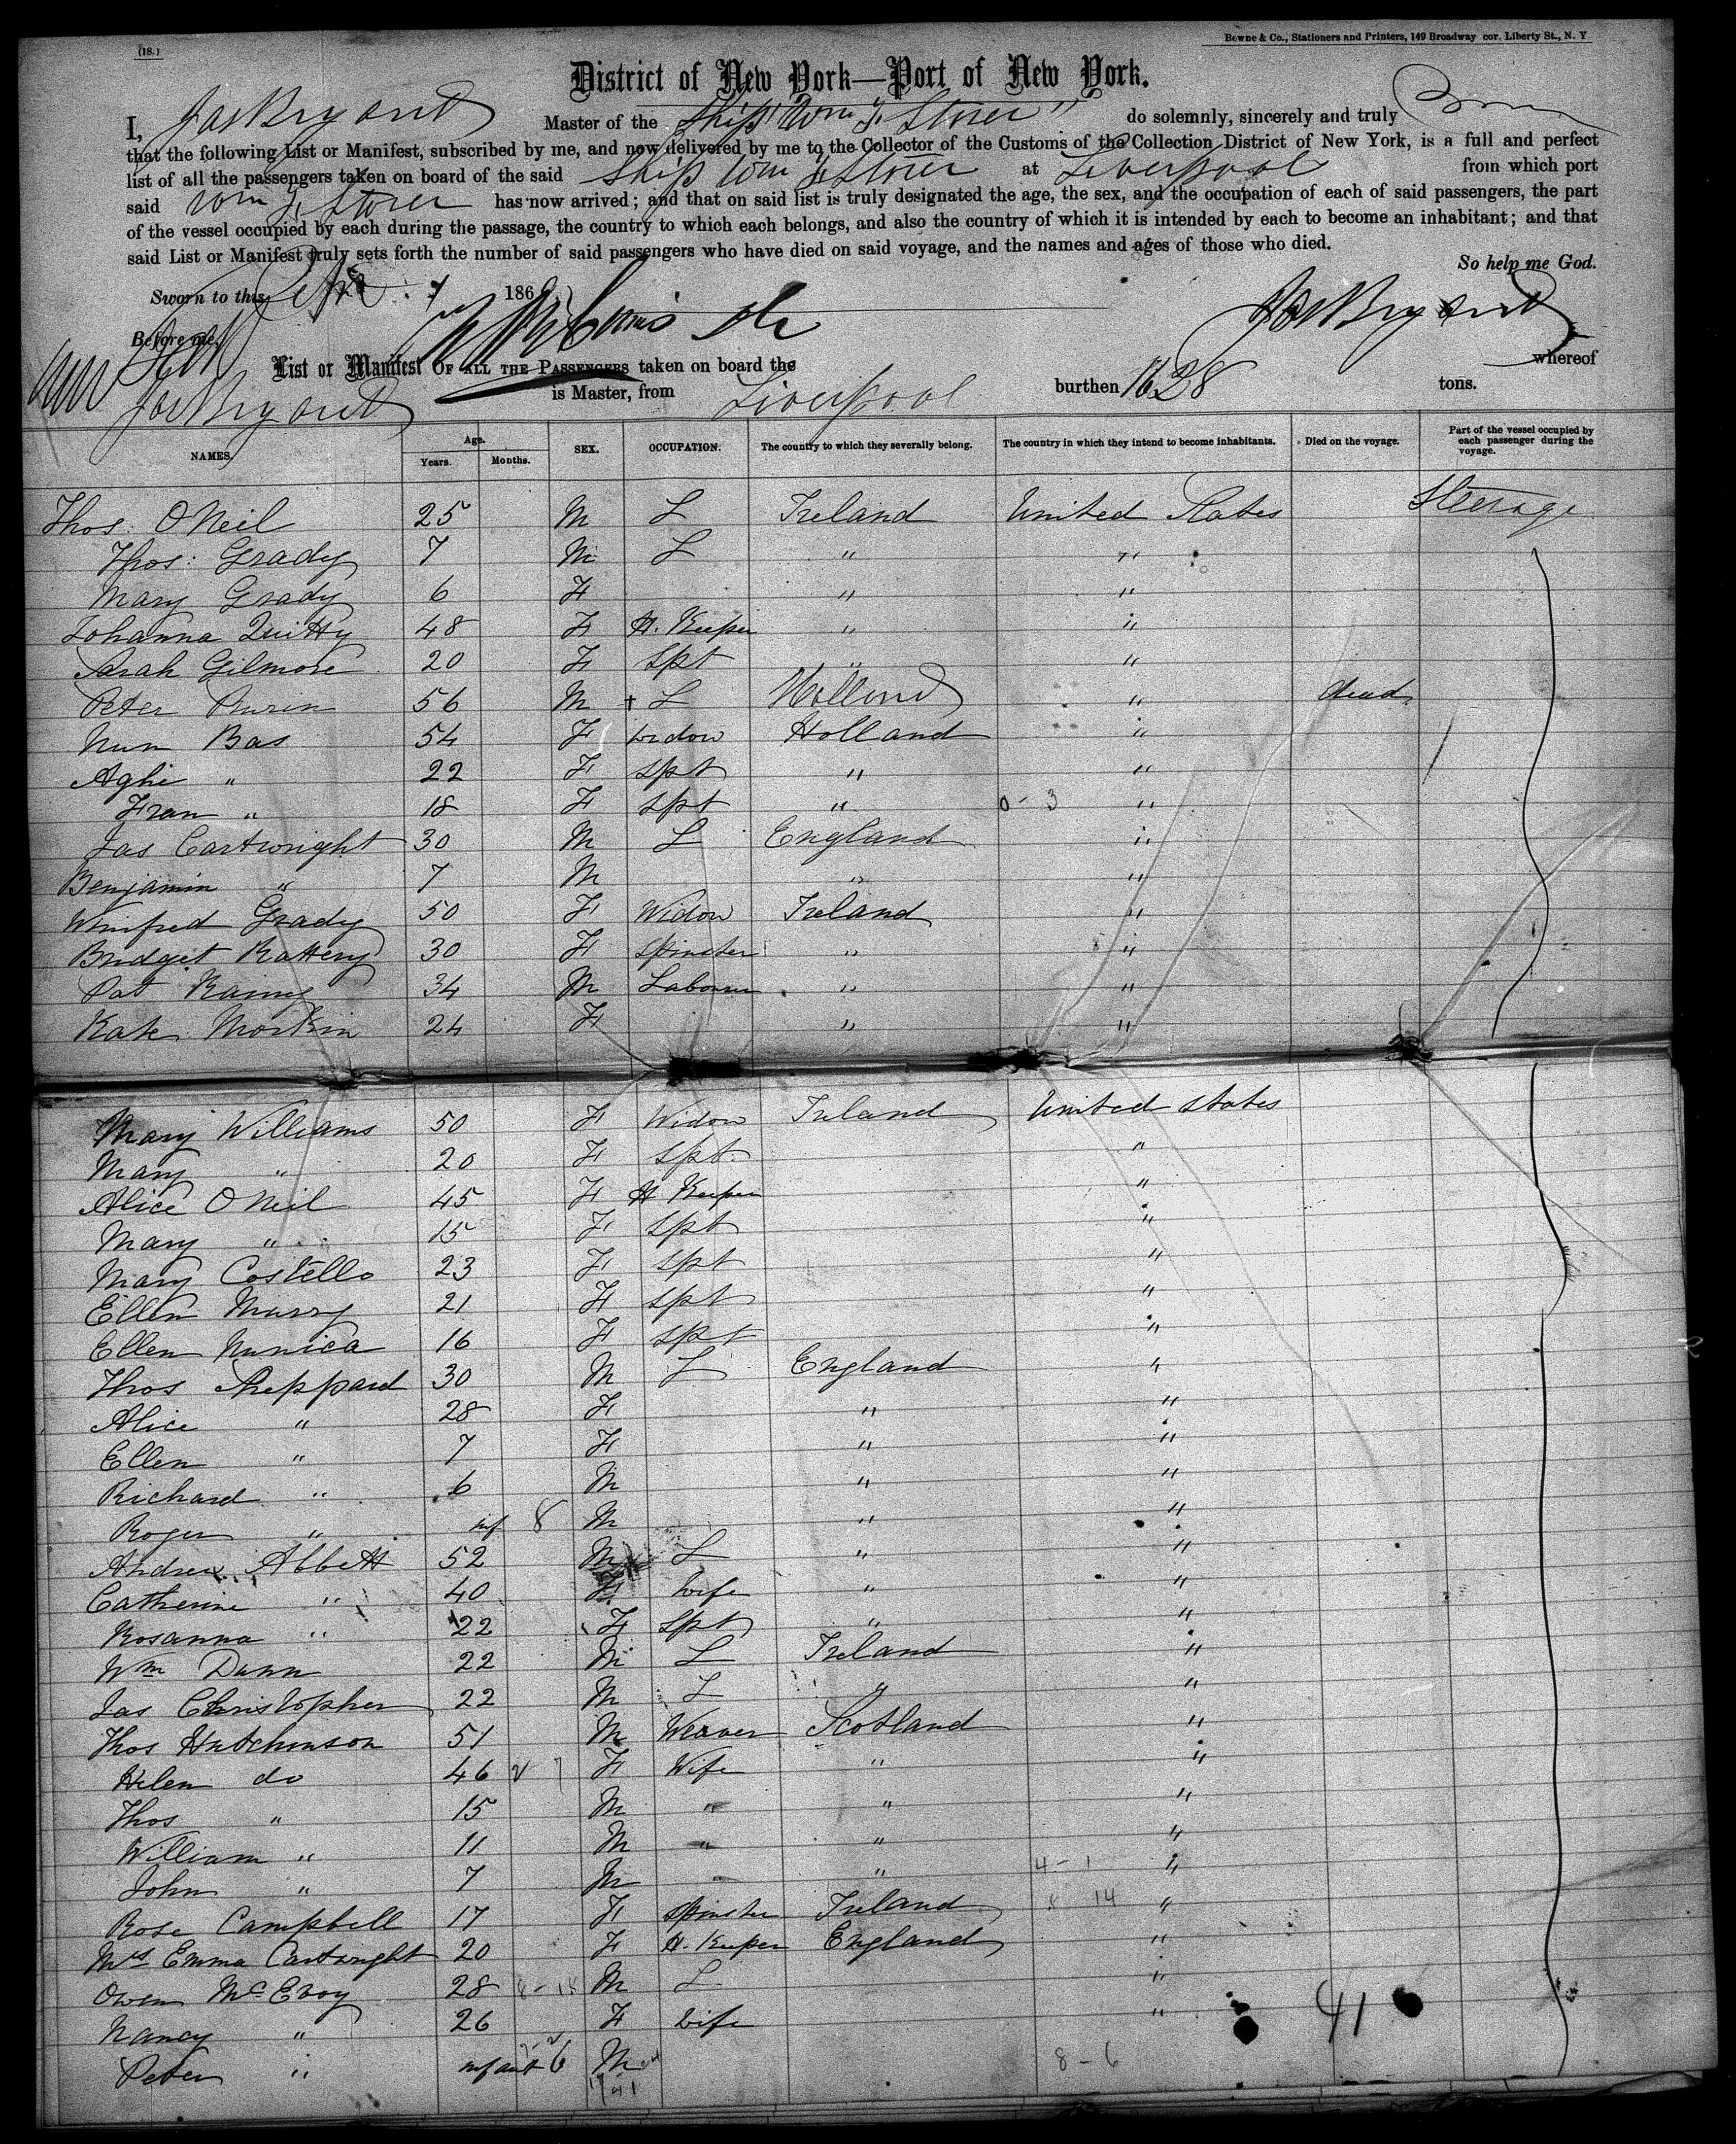 (18.)
Bowne & Co., Stationers and Printers, 149 Broadway cor. Liberty St., N. Y
District of New York—Port of New York.
I, Jas Bryant Master of the Ship "Wm F. Storer" do solemnly, sincerely and truly
that the following List or Manifest, subscribed by me, and now delivered by me to the Collector of the Customs of the Collection District of New York, is a full and perfect
list of all the passengers taken on board of the said Ship Wm F Storer at Liverpool from which port
said Wm F. Storer has now arrived; and that on said list is truly designated the age, the sex, and the occupation of each of said passengers, the part
of the vessel occupied by each during the passage, the country to which each belongs, and also the country of which it is intended by each to become an inhabitant; and that
said List or Manifest truly sets forth the number of said passengers who have died on said voyage, and the names and ages of those who died.
So help me God.
Sworn to this 186
Before me, Jas Bryant
List or Manifest OF ALL THE PASSENGERS taken on board the whereof
Jas Bryant is Master, from Liverpool burthen 1628 tons.
NAMES. Age. Years. Months. SEX. OCCUPATION. The country to which they severally belong. The country in which they intend to become inhabitants. Died on the voyage. Part of the vessel occupied by each passenger during the voyage.
Thos. O Neil 25 M L Ireland United States Steerage
Thos: Grady 7 M L " "
Mary Grady 6 F " "
Johanna Quitty 48 F H. Keeper " "
Sarah Gilmore 20 F Spt " "
Peter 56 M + L Holland " dead
Bas 54 F Widow Holland "
Aghi " 22 F Spt " "
Fran " 18 F Spt " 0 - 3 "
Jas Cartwright 30 M L England "
Benjamin " 7 M " "
Winifred Grady 50 F Widow Ireland "
Bridget Rattery 30 F Spinster " "
Pat 34 M Labourer " "
Kate 24 F " "
Mary Williams 50 F Widow Ireland United States
Mary " 20 F Spt. "
Alice O Neil 45 F H Keeper "
Mary " 15 F Spt "
Mary Costello 23 F Spt "
Ellen Murry 21 F Spt "
Ellen 16 F Spt "
Thos Sheppard 30 M L England "
Alice " 28 F " "
Ellen " 7 F " "
Richard " 6 M " "
Roger " inf 8 M " "
Andrew Abbett 52 M L " "
Catherine " 40 F Wife " "
Rosanna " 22 F Spt " "
Wm Dunn 22 M L Ireland "
Jas Christopher 22 M L " "
Thos Hutchinson 51 M Weaver Scotland "
Helen do 46 F Wife " "
Thos " 15 M " " "
William " 11 M " " "
John " 7 M " " 4 - 1 "
Rose Campbell 17 F Spinster Ireland 8 14 "
Mrs Emma Cartwright 20 F H. Keeper England "
Owen McEvoy 28 8 - 18 M L "
Nancy " 26 F Wife " 41
Peter " infant 6 M 8 - 6
41